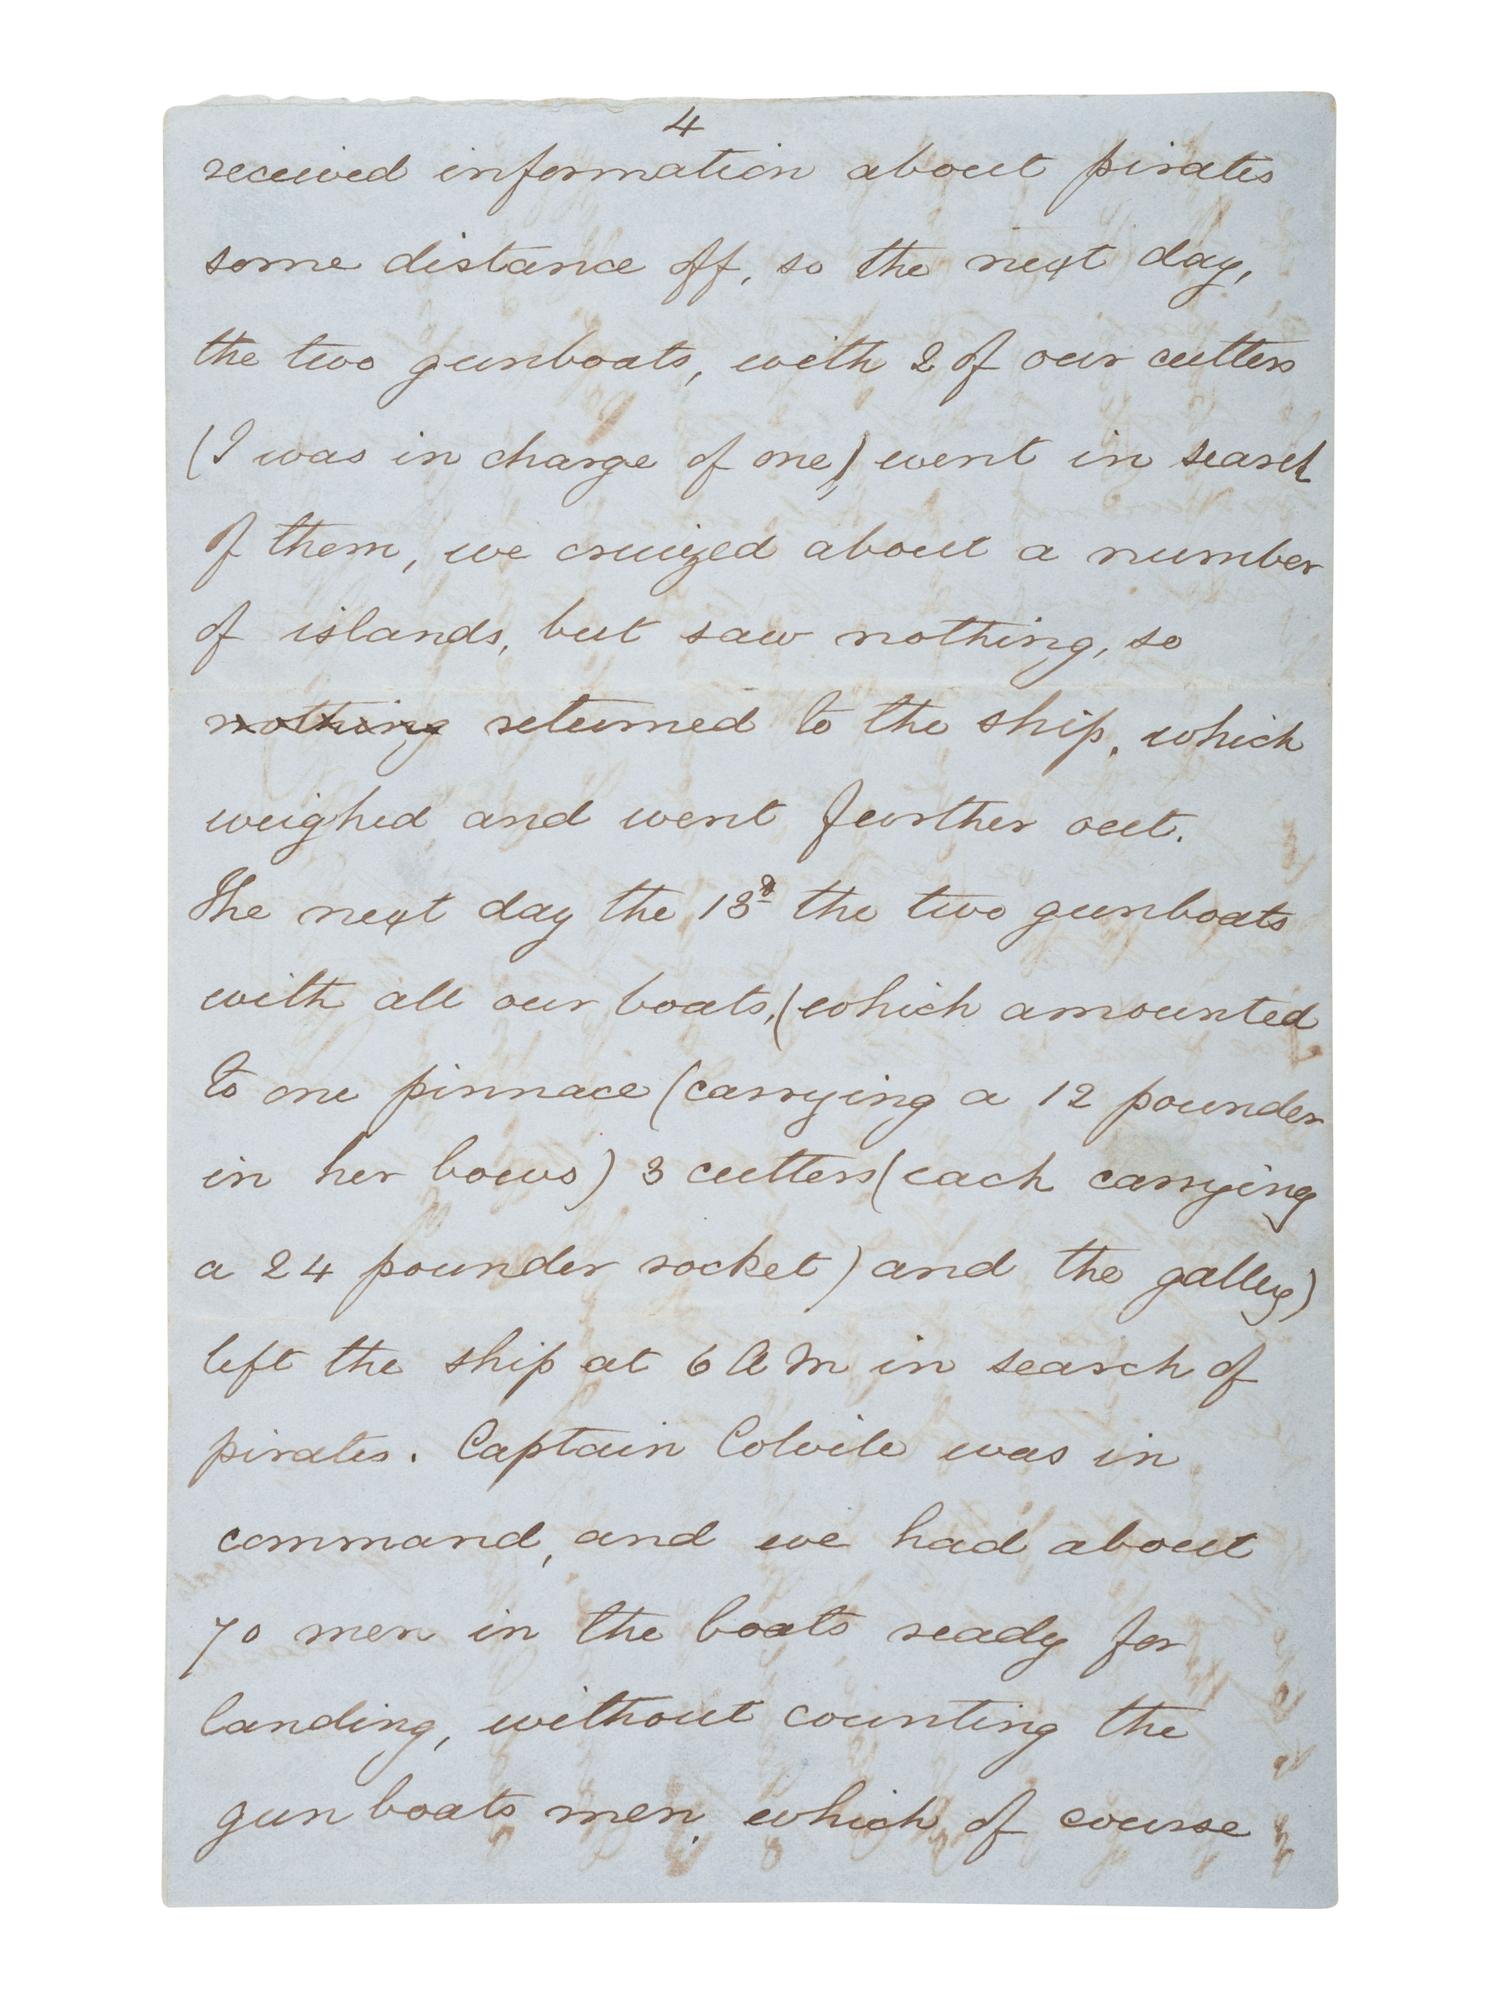 4
received information about pirates
some distance off, so the next day,
the two gunboats, with 2 of our cutters
(I was in charge of one,) went in search
of them, we cruized about a number
of islands, but saw nothing, so
nothing returned to the ship, which
weighed and went further out.
The next day the 13d the two gunboats
with all our boats, (which amounted
to one pinnace (carrying a 12 pounder
in her bows) 3 cutters (each carrying
a 24 pounder rocket) and the galley)
left the ship at 6 AM in search of
pirates. Captain Colvile was in
command, and we had about
70 men in the boats ready for
landing, without counting the
gun boats men, which of course